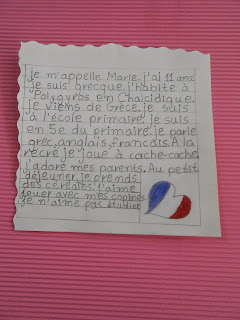 je m'appelle Marie. j'ai 11 ans
je suis grecque. j'habite à
Polygyros en Chalcidique.
je viens de Grèce. je suis
à l'école primaire. je suis
en 5e du primaire. je parle
grec, anglais, francais. A la
récré je joue à cache-cache.
j'adore mes parents. Au petit
déjeuner je prends
des céréales. J'aime
jouer avec mes copines
je n'aime pas étudier